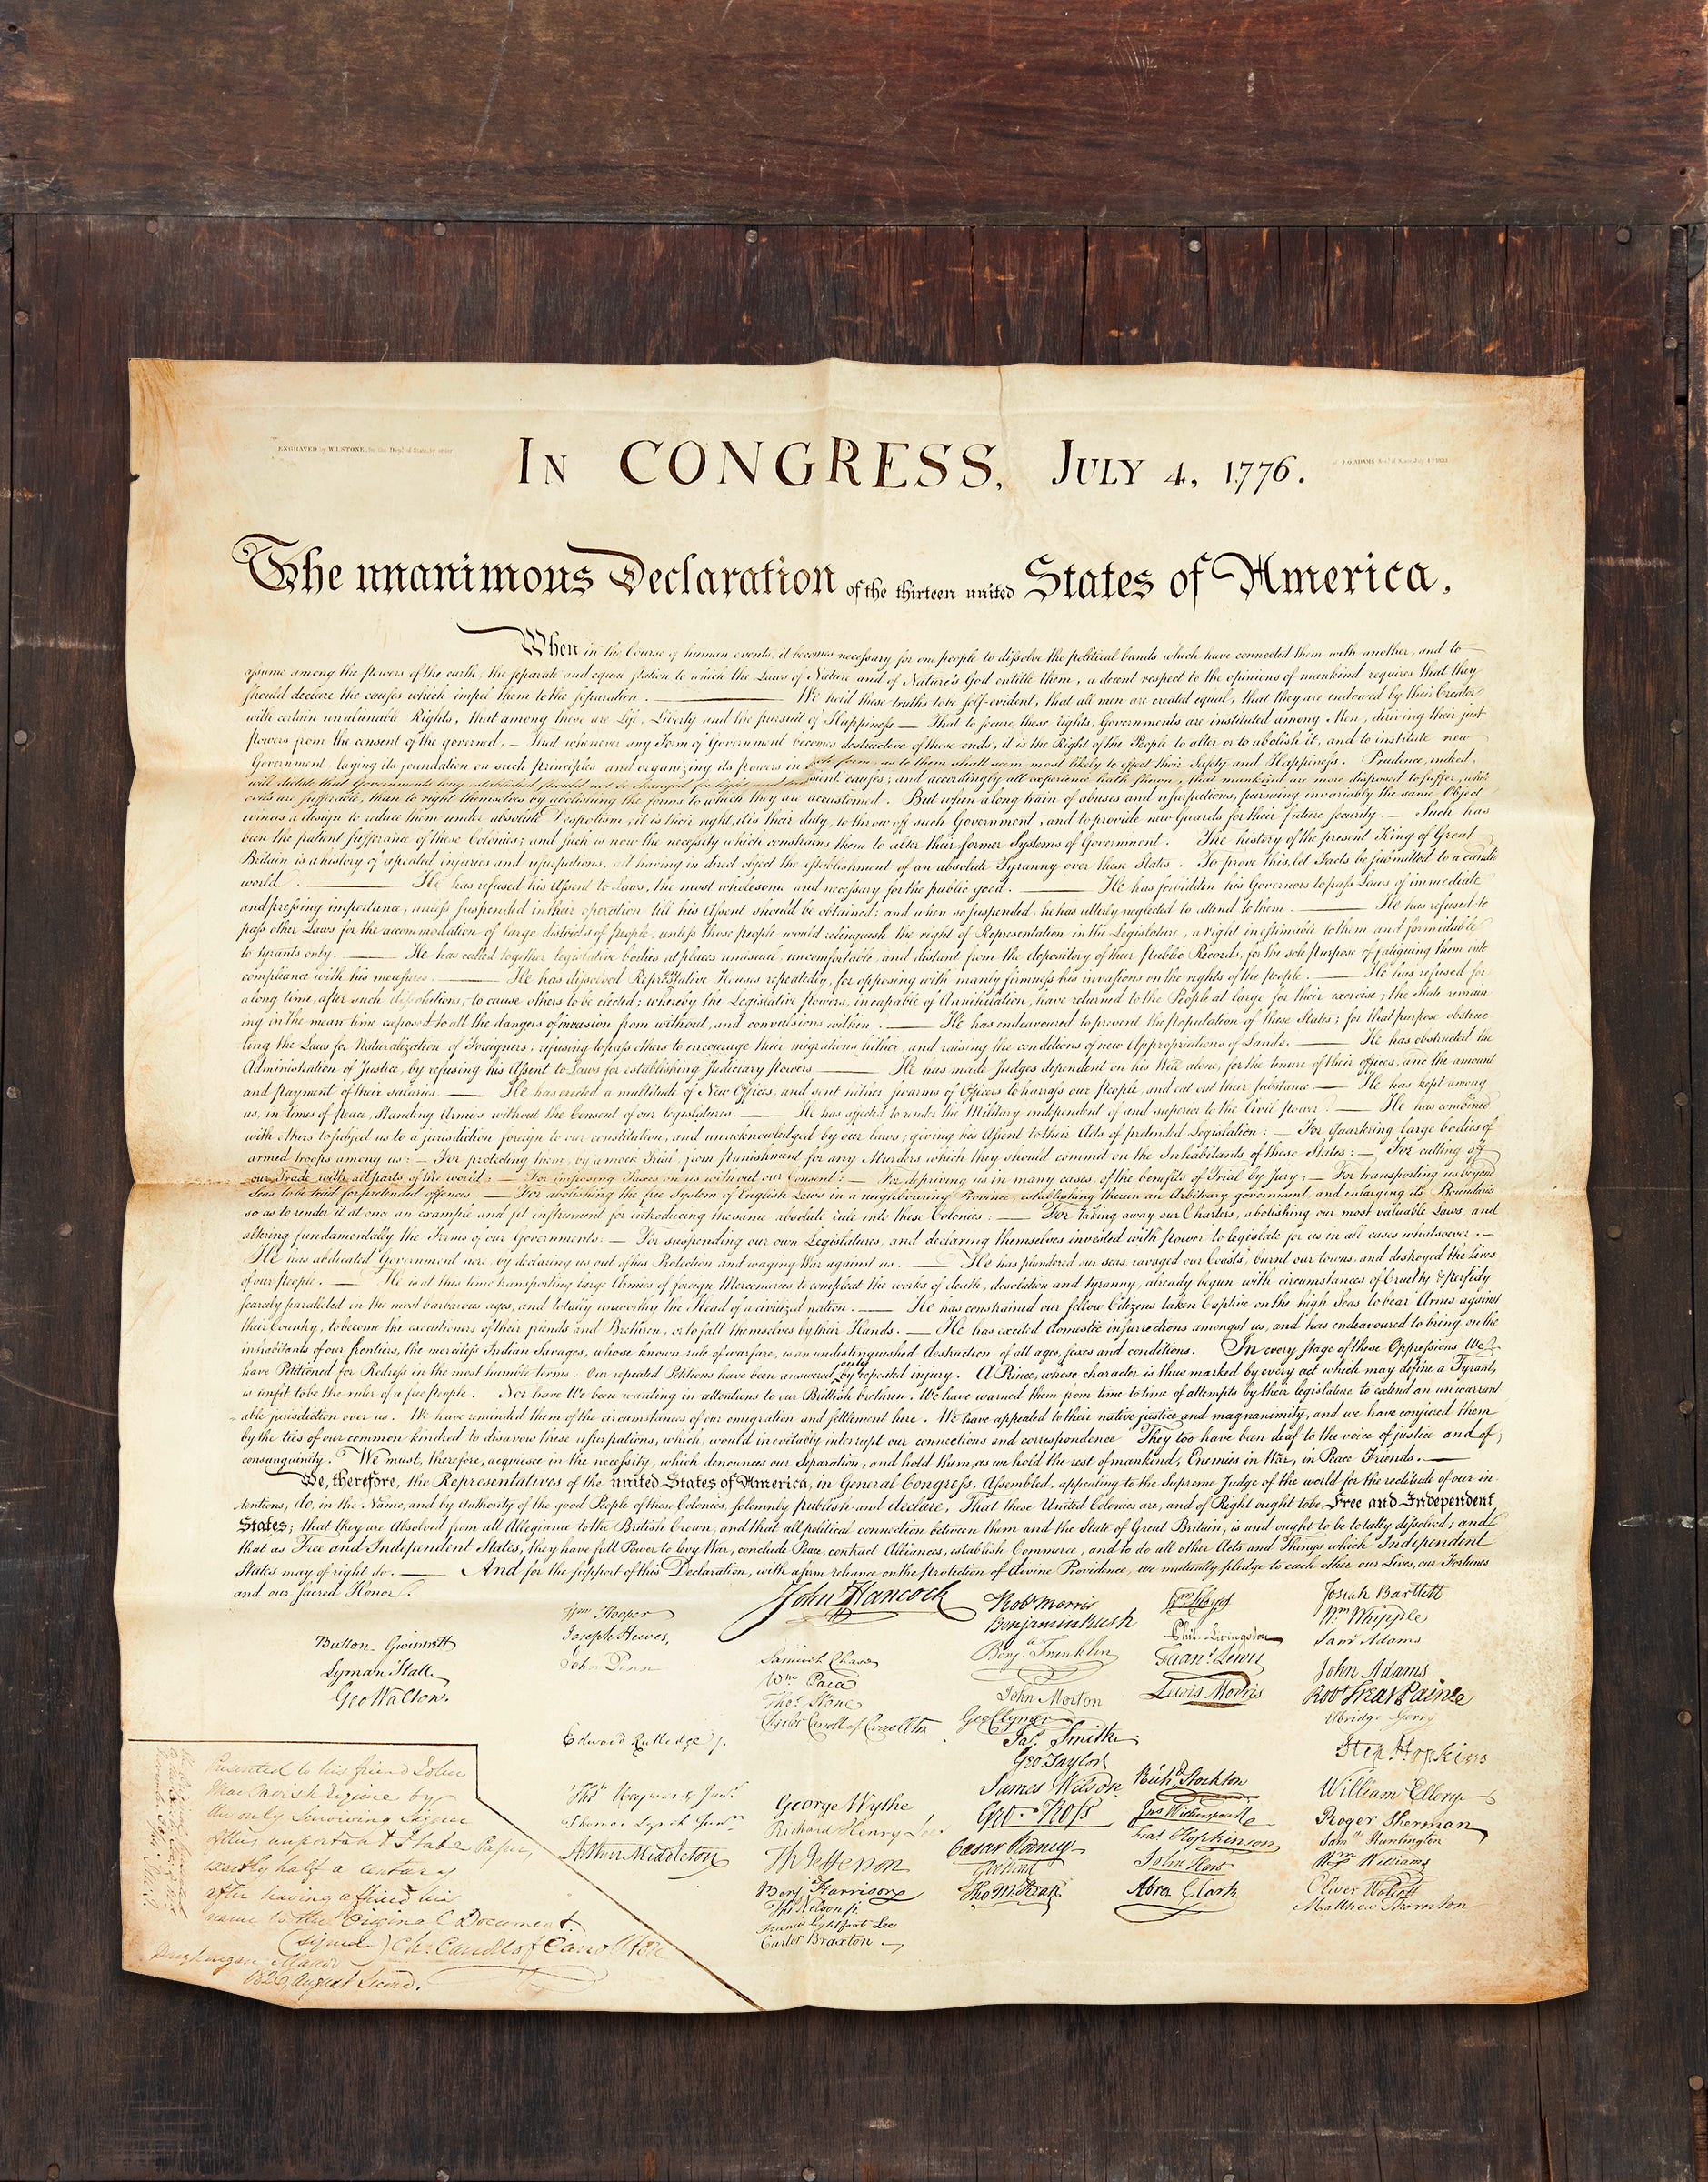 ENGRAVED by W.I.STONE for the Dept of State by order
of J.Q.ADAMS Sec of State July 4th 1823.
In CONGRESS, July 4, 1776.
The unanimous Declaration of the thirteen united States of America,
When in the Course of human events, it becomes necessary for one people to dissolve the political bands which have connected them with another, and to
assume among the powers of the earth, the separate and equal station to which the Laws of Nature and of Nature's God entitle them, a decent respect to the opinions of mankind requires that they
should declare the causes which impel them to the separation. — We hold these truths to be self-evident, that all men are created equal, that they are endowed by their Creator
with certain unalienable Rights, that among these are Life, Liberty and the pursuit of Happiness — That to secure these rights, Governments are instituted among Men, deriving their just
powers from the consent of the governed, — That whenever any Form of Government becomes destructive of these ends, it is the Right of the People to alter or to abolish it, and to institute new
Government, laying its foundation on such principles and organizing its powers in such form, as to them shall seem most likely to effect their Safety and Happiness. Prudence, indeed,
will dictate that Governments long established should not be changed for light and transient causes; and accordingly all experience hath shewn, that mankind are more disposed to suffer, while
evils are sufferable, than to right themselves by abolishing the forms to which they are accustomed. But when a long train of abuses and usurpations, pursuing invariably the same Object
evinces a design to reduce them under absolute Despotism, it is their right, it is their duty, to throw off such Government, and to provide new Guards for their future security. — Such has
been the patient sufferance of these Colonies; and such is now the necessity which constrains them to alter their former Systems of Government. The history of the present King of Great
Britain is a history of repeated injuries and usurpations, all having in direct object the establishment of an absolute Tyranny over these States. To prove this, let Facts be submitted to a candid
world. — He has refused his Assent to Laws, the most wholesome and necessary for the public good. — He has forbidden his Governors to pass Laws of immediate
and pressing importance, unless suspended in their operation till his Assent should be obtained; and when so suspended, he has utterly neglected to attend to them. — He has refused to
pass other Laws for the accommodation of large districts of people, unless those people would relinquish the right of Representation in the Legislature, a right inestimable to them and formidable
to tyrants only. — He has called together legislative bodies at places unusual, uncomfortable, and distant from the depository of their Public Records, for the sole purpose of fatiguing them into
compliance with his measures. — He has dissolved Representative Houses repeatedly, for opposing with manly firmness his invasions on the rights of the people. — He has refused for
a long time, after such dissolutions, to cause others to be elected; whereby the Legislative powers, incapable of Annihilation, have returned to the People at large for their exercise; the State remain
ing in the mean time exposed to all the dangers of invasion from without, and convulsions within. — He has endeavoured to prevent the population of these States; for that purpose obstruc
ting the Laws for Naturalization of Foreigners; refusing to pass others to encourage their migrations hither, and raising the conditions of new Appropriations of Lands. — He has obstructed the
Administration of Justice, by refusing his Assent to Laws for establishing Judiciary powers — He has made Judges dependent on his Will alone, for the tenure of their offices, and the amount
and payment of their salaries. — He has erected a multitude of New Offices, and sent hither swarms of Officers to harrass our people, and eat out their substance — He has kept among
us, in times of peace, Standing Armies without the Consent of our legislatures. — He has affected to render the Military independent of and superior to the Civil power. — He has combined
with others to subject us to a jurisdiction foreign to our constitution, and unacknowledged by our laws; giving his Assent to their Acts of pretended Legislation: — For Quartering large bodies of
armed troops among us: — For protecting them, by a mock Trial, from punishment for any Murders which they should commit on the Inhabitants of these States: — For cutting off
our Trade with all parts of the world: — For imposing Taxes on us without our Consent: — For depriving us in many cases, of the benefits of Trial by Jury: — For transporting us beyond
Seas to be tried for pretended offences — For abolishing the free System of English Laws in a neighbouring Province, establishing therein an Arbitrary government, and enlarging its Boundaries
so as to render it at once an example and fit instrument for introducing the same absolute rule into these Colonies: — For taking away our Charters, abolishing our most valuable Laws, and
altering fundamentally the Forms of our Governments: — For suspending our own Legislatures, and declaring themselves invested with power to legislate for us in all cases whatsoever. —
He has abdicated Government here, by declaring us out of his Protection and waging War against us. — He has plundered our seas, ravaged our Coasts, burnt our towns, and destroyed the lives
of our people. — He is at this time transporting large Armies of foreign Mercenaries to compleat the works of death, desolation and tyranny, already begun with circumstances of Cruelty & perfidy
scarcely paralleled in the most barbarous ages, and totally unworthy the Head of a civilized nation. — He has constrained our fellow Citizens taken Captive on the high Seas to bear Arms against
their Country, to become the executioners of their friends and Brethren, or to fall themselves by their Hands. — He has excited domestic insurrections amongst us, and has endeavoured to bring on the
inhabitants of our frontiers, the merciless Indian Savages, whose known rule of warfare, is an undistinguished destruction of all ages, sexes and conditions. In every stage of these Oppressions We
have Petitioned for Redress in the most humble terms: Our repeated Petitions have been answered only by repeated injury. A Prince, whose character is thus marked by every act which may define a Tyrant,
is unfit to be the ruler of a free people. Nor have We been wanting in attentions to our Brittish brethren. We have warned them from time to time of attempts by their legislature to extend an unwarrant
able jurisdiction over us. We have reminded them of the circumstances of our emigration and settlement here. We have appealed to their native justice and magnanimity, and we have conjured them
by the ties of our common kindred to disavow these usurpations, which, would inevitably interrupt our connections and correspondence. They too have been deaf to the voice of justice and of
consanguinity. We must, therefore, acquiesce in the necessity, which denounces our Separation, and hold them, as we hold the rest of mankind, Enemies in War, in Peace Friends. —
We, therefore, the Representatives of the united States of America, in General Congress, Assembled, appealing to the Supreme Judge of the world for the rectitude of our in
tentions, do, in the Name, and by Authority of the good People of these Colonies, solemnly publish and declare, That these United Colonies are, and of Right ought to be Free and Independent
States; that they are Absolved from all Allegiance to the British Crown, and that all political connection between them and the State of Great Britain, is and ought to be totally dissolved; and
that as Free and Independent States, they have full Power to levy War, conclude Peace, contract Alliances, establish Commerce, and to do all other Acts and Things which Independent
States may of right do. — And for the support of this Declaration, with a firm reliance on the protection of divine Providence, we mutually pledge to each other our Lives, our Fortunes
and our sacred Honor.
Button Gwinnett
Lyman Hall
Geo Walton.
Wm Hooper
Joseph Hewes,
John Penn
Edward Rutledge /.
Thos Heyward Junr.
Thomas Lynch Junr.
Arthur Middleton
John Hancock
Samuel Chase
Wm Paca
Thos Stone
Charles Carroll of Carrollton
George Wythe
Richard Henry Lee
Th Jefferson
Benj Harrison
Thos Nelson jr.
Francis Lightfoot Lee
Carter Braxton
Robt Morris
Benjamin Rush
Benja. Franklin
John Morton
Geo Clymer
Jas. Smith
Geo. Taylor
James Wilson
Geo. Ross
Caesar Rodney
Geo Read
Tho M:Kean
Wm Floyd
Phil. Livingston
Frans. Lewis
Lewis Morris
Richd. Stockton
Jno Witherspoon
Fras. Hopkinson
John Hart
Abra Clark
Josiah Bartlett
Wm Whipple
Saml Adams
John Adams
Robt Treat Paine
Elbridge Gerry
Step. Hopkins
William Ellery
Roger Sherman
Saml Huntington
Wm Williams
Oliver Wolcott
Matthew Thornton
Presented to his friend John
Mac Tavish Esquire by
the only Surviving Signer
of this important State Paper,
exactly half a century
after having affixed his
name to the Original Document.
(signed) Ch. Carroll of Carrollton
Doughoregan Manor
1826, August Second.